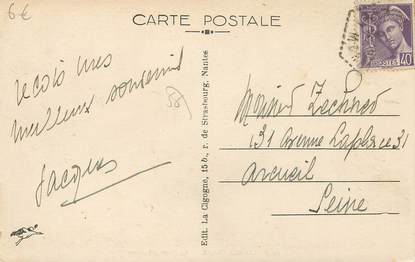 6€
CARTE POSTALE
POSTES 40
reçois mes
meilleurs souvenirs
Jacques
58
Edit. La Cigogne, 15 b, r. de Strasbourg, Nantes
Monsieur
131 Avenue Laplace 31
Arcueil
Seine